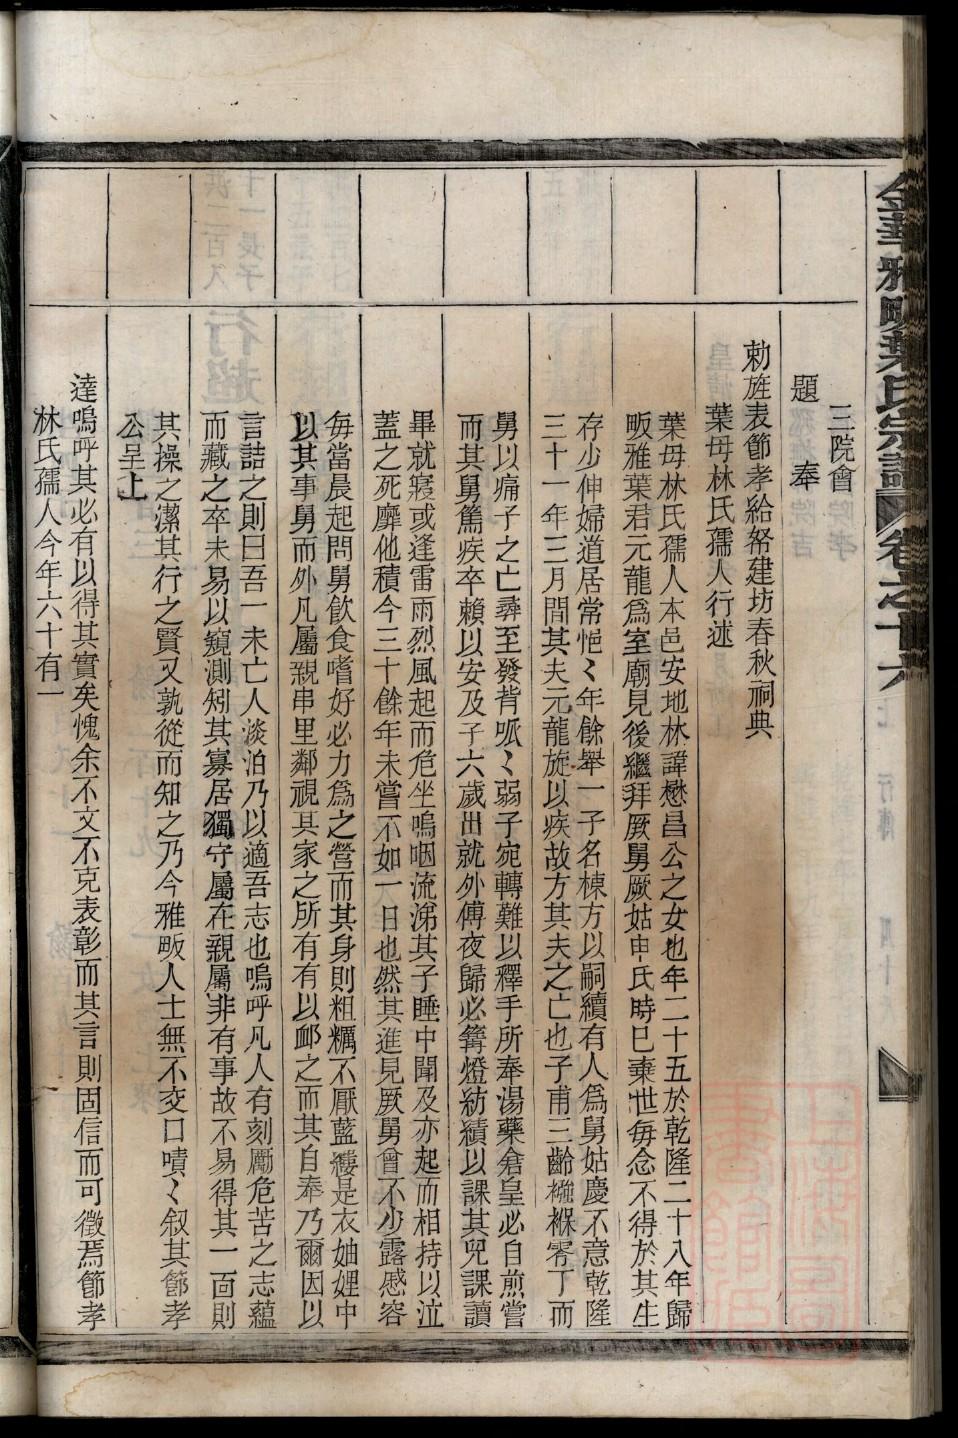 金華雅畈葉氏宗譜 卷之十六 上 行傳
三院會
題 奉
勅旌表節孝給帑建坊春秋祠典
葉母林氏孺人行述
葉母林氏孺人本邑安地林諱懋昌公之女也年二十五於乾隆二十八年歸
畈雅葉君元龍爲室廟見後繼拜厥舅厥姑申氏時已棄世每念不得於其生
存少伸婦道居常悒〻年餘舉一子名棟方以嗣續有人爲舅姑慶不意乾隆
三十一年三月間其夫元龍旋以疾故方其夫之亡也子甫三齡襁褓零丁而
舅以痛子之亡彞至發背呱〻弱子宛轉難以釋手所奉湯藥倉皇必自煎嘗
而其舅篤疾卒賴以安及子六歲出就外傅夜歸必篝燈紡績以課其兒課讀
畢就寢或逢雷雨烈風起而危坐嗚咽流涕其子睡中聞及亦起而相持以泣
蓋之死靡他積今三十餘年未嘗不如一日也然其進見厥舅曾不少露慼容
每當晨起問舅飲食嗜好必力爲之營而其身則粗糲不厭藍縷是衣妯娌中
以其事舅而外凡屬親串里鄰視其家之所有有以卹之而其自奉乃爾因以
言詰之則曰吾一未亡人淡泊乃以適吾志也嗚呼凡人有刻勵危苦之志蘊
而藏之卒未易以窺測矧其寡居獨守屬在親屬非有事故不易得其一面則
其操之潔其行之賢又孰從而知之乃今雅畈人士無不交口嘖〻叙其節孝
公呈上
達嗚呼其必有以得其實矣愧余不文不克表彰而其言則固信而可徵焉節孝
林氏孺人今年六十有一